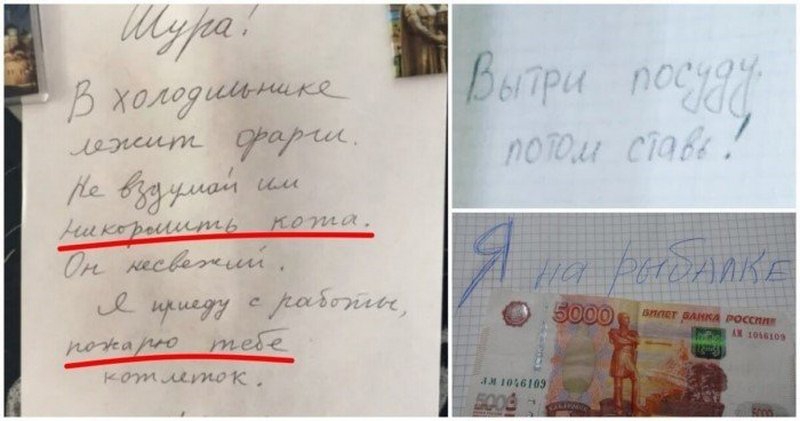 Шура!
В холодильнике
лежит фарш.
Не вздумай им
накормить кота.
Он несвежий.
Я приеду с работы,
пожарю тебе
котлеток.
Вытри посуду,
потом ставь!
Я на рыбалке
5000 БИЛЕТ БАНКА РОССИИ
АМ 1046109
5000